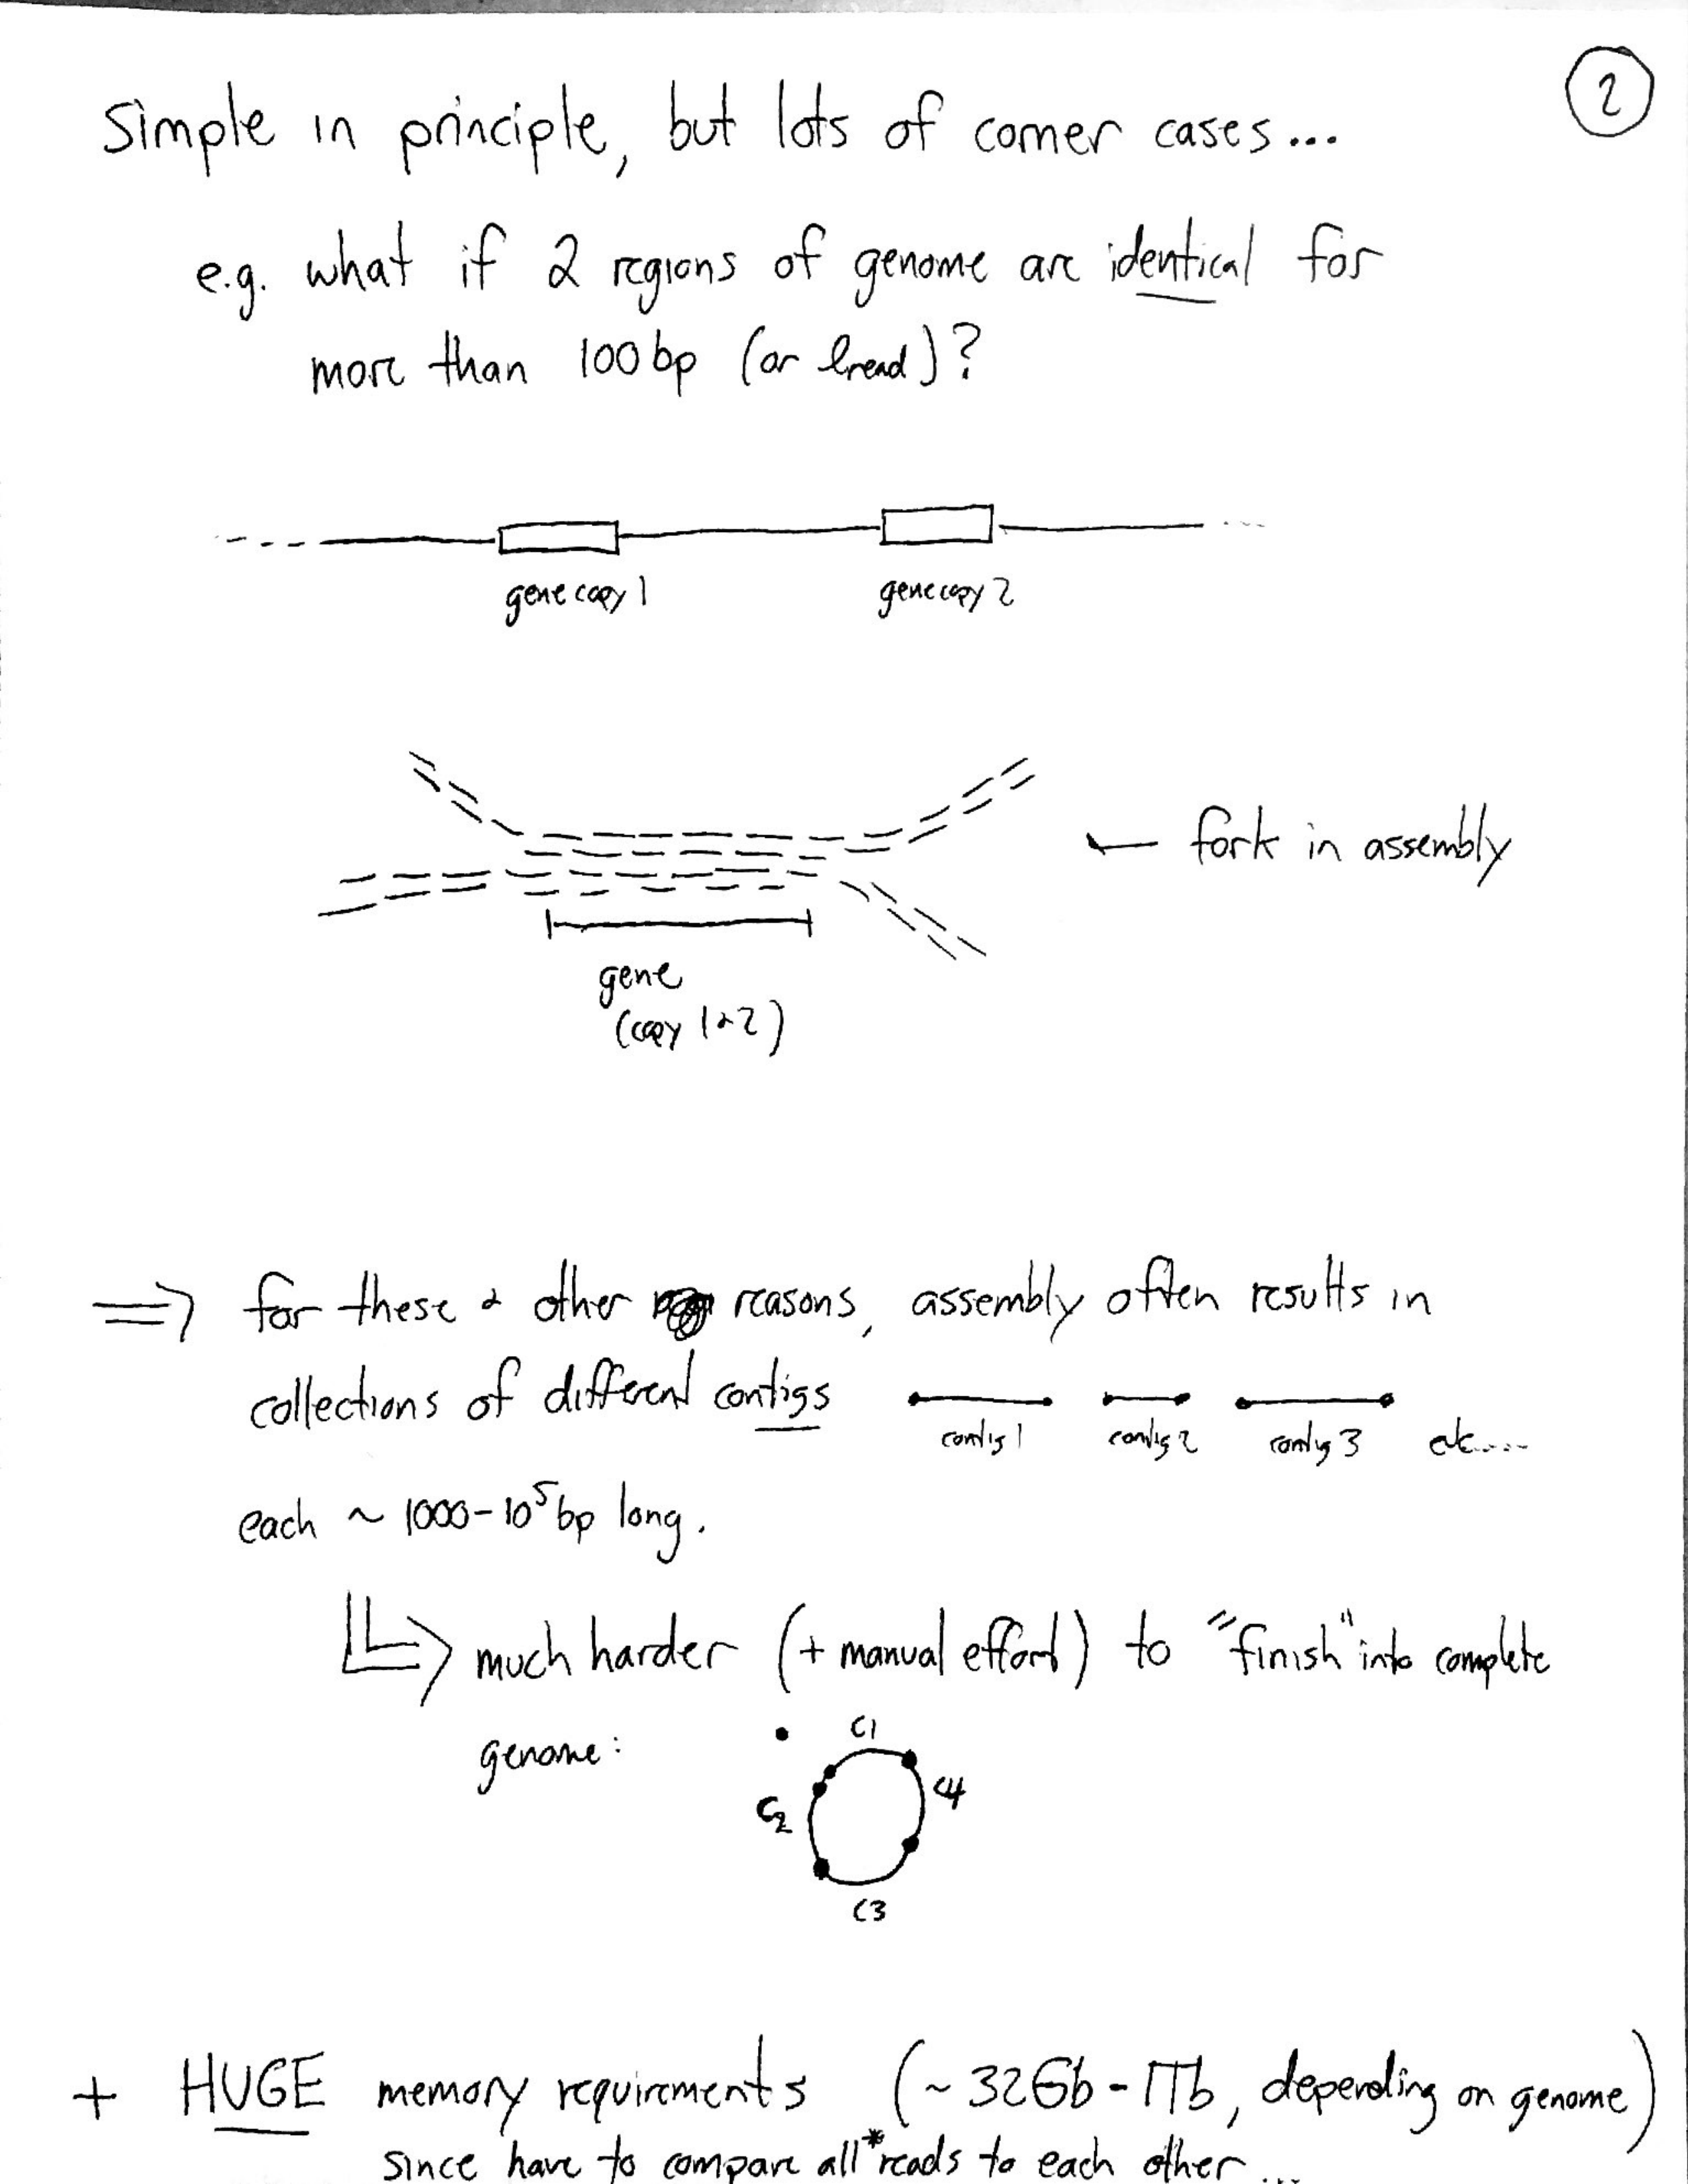 2
Simple in principle, but lots of corner cases...
e.g. what if 2 regions of genome are identical for
more than 100bp (or lread)?
gene copy 1
gene copy 2
← fork in assembly
gene
(copy 1 & 2)
⇒ for these & other reasons, assembly often results in
collections of different contigs
contig 1 contig 2 contig 3 etc....
each ~ 1000-10⁵ bp long.
much harder (+ manual effort) to "finish" into complete
genome:
C1
C4
C2
C3
+ HUGE memory requirements (~32Gb-1Tb, depending on genome)
since have to compare all* reads to each other...